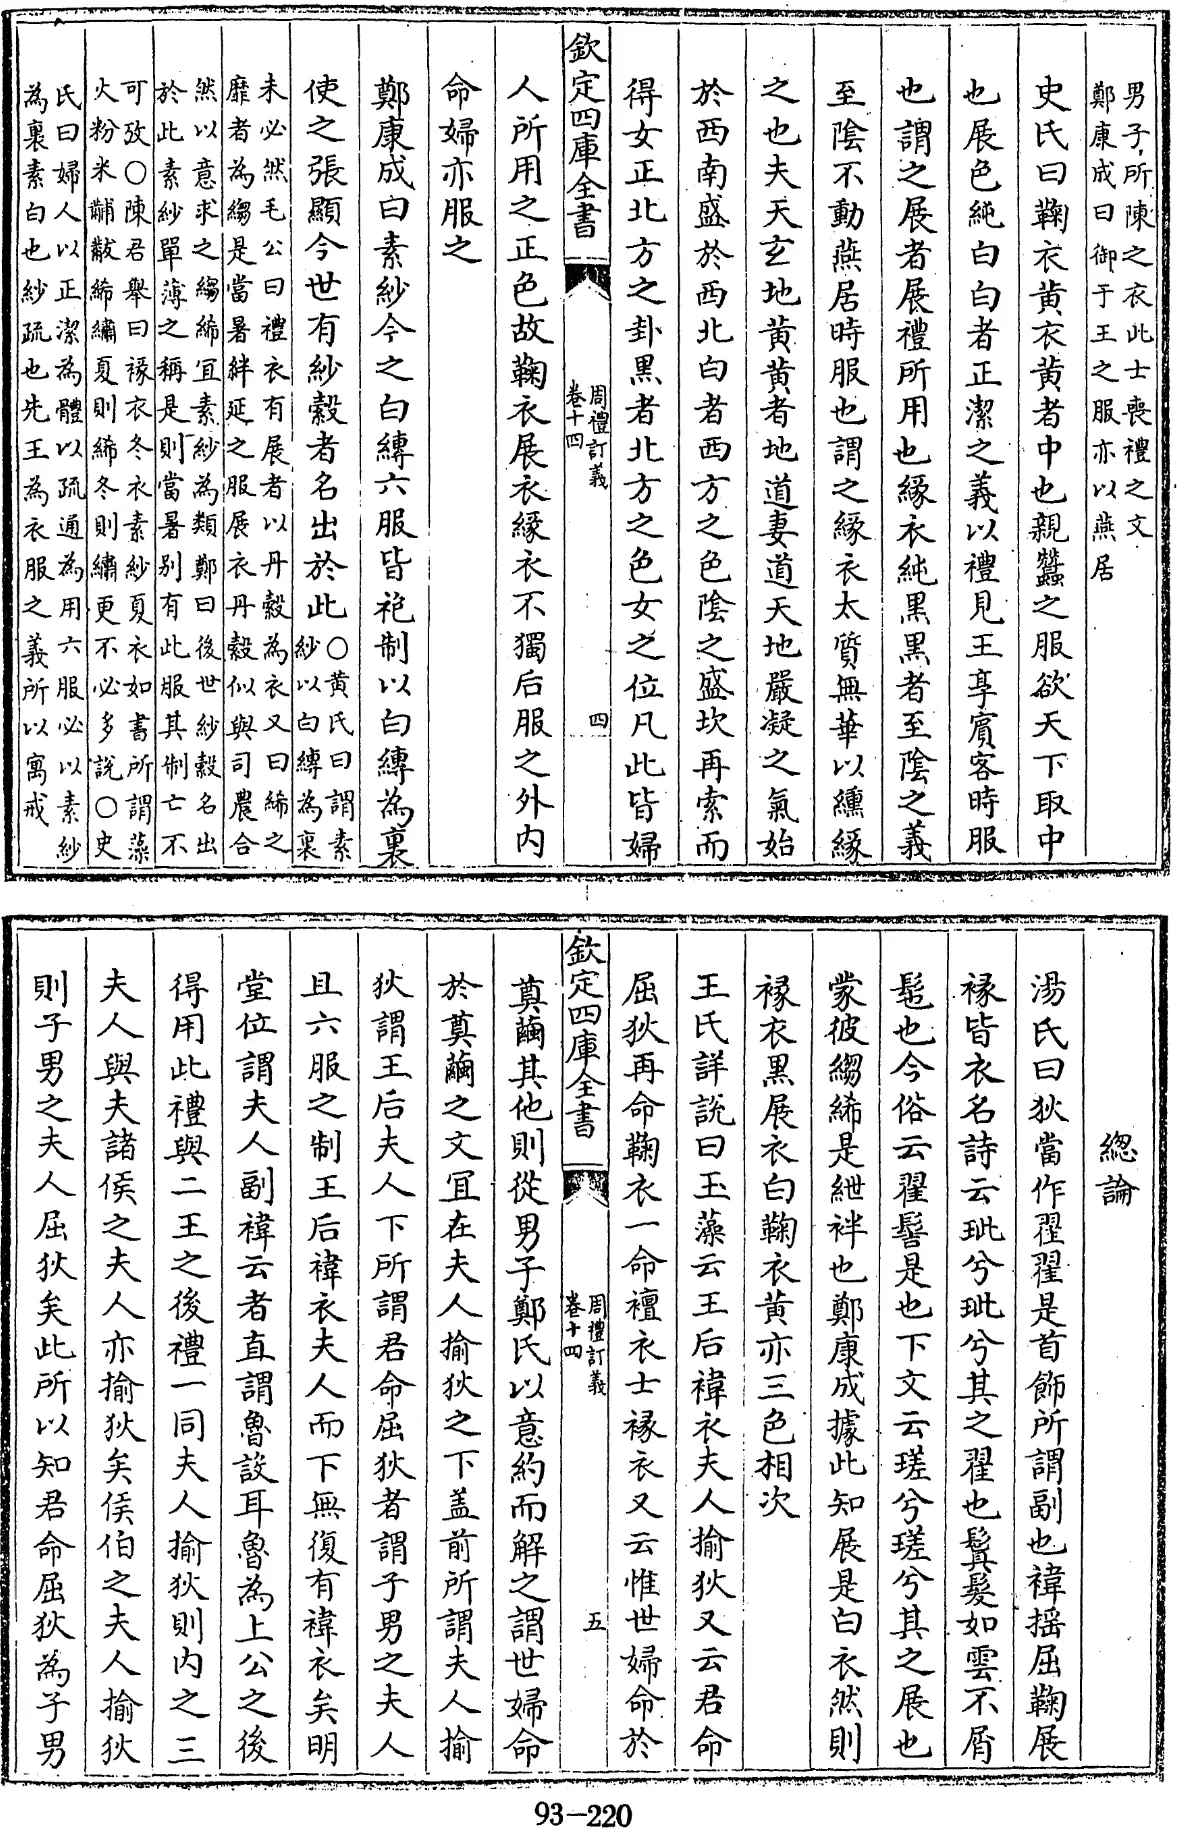 男子所陳之衣此士喪禮之文
鄭康成曰御于王之服亦以燕居
史氏曰鞠衣黄衣黄者中也親蠶之服欲天下取中
也展色純白白者正潔之義以禮見王享賓客時服
也謂之展者展禮所用也緣衣純黒黒者至陰之義
至陰不動燕居時服也謂之緣衣太質無華以纁緣
之也夫天玄地黄黄者地道妻道天地嚴凝之氣始
於西南盛於西北白者西方之色陰之盛坎再索而
得女正北方之卦黒者北方之色女之位凡此皆婦
欽定四庫全書
周禮訂義
卷十四
四
人所用之正色故鞠衣展衣緣衣不獨后服之外内
命婦亦服之
鄭康成曰素紗今之白縳六服皆袍制以白縳為裏
使之張顯今世有紗縠者名出於此
○黄氏曰謂素
紗以白縳為裏
未必然毛公曰禮衣有展者以丹縠為衣又曰絺之
靡者為縐是當暑絆延之服展衣丹縠似與司農合
然以意求之縐絺宜素紗為類鄭曰後世紗縠名出
於此素紗單薄之稱是則當暑别有此服其制亡不
可攷○陳君舉曰褖衣冬衣素紗夏衣如書所謂藻
火粉米黼黻絺繡夏則絺冬則繡更不必多説○史
氏曰婦人以正潔為體以疏通為用六服必以素紗
為裏素白也紗疏也先王為衣服之義所以寓戒
總論
湯氏曰狄當作翟翟是首飾所謂副也褘揺屈鞠展
褖皆衣名詩云玼兮玼兮其之翟也鬒髮如雲不屑
髢也今俗云翟髻是也下文云瑳兮瑳兮其之展也
蒙彼縐絺是紲袢也鄭康成據此知展是白衣然則
褖衣黒展衣白鞠衣黄亦三色相次
王氏詳説曰玉藻云王后褘衣夫人揄狄又云君命
屈狄再命鞠衣一命襢衣士褖衣又云惟世婦命於
欽定四庫全書
周禮訂義
卷十四
五
奠繭其他則從男子鄭氏以意約而解之謂世婦命
於奠繭之文宜在夫人揄狄之下盖前所謂夫人揄
狄謂王后夫人下所謂君命屈狄者謂子男之夫人
且六服之制王后褘衣夫人而下無復有褘衣矣明
堂位謂夫人副褘云者直謂魯設耳魯為上公之後
得用此禮與二王之後禮一同夫人揄狄則内之三
夫人與夫諸侯之夫人亦揄狄矣侯伯之夫人揄狄
則子男之夫人屈狄矣此所以知君命屈狄為子男
93-220